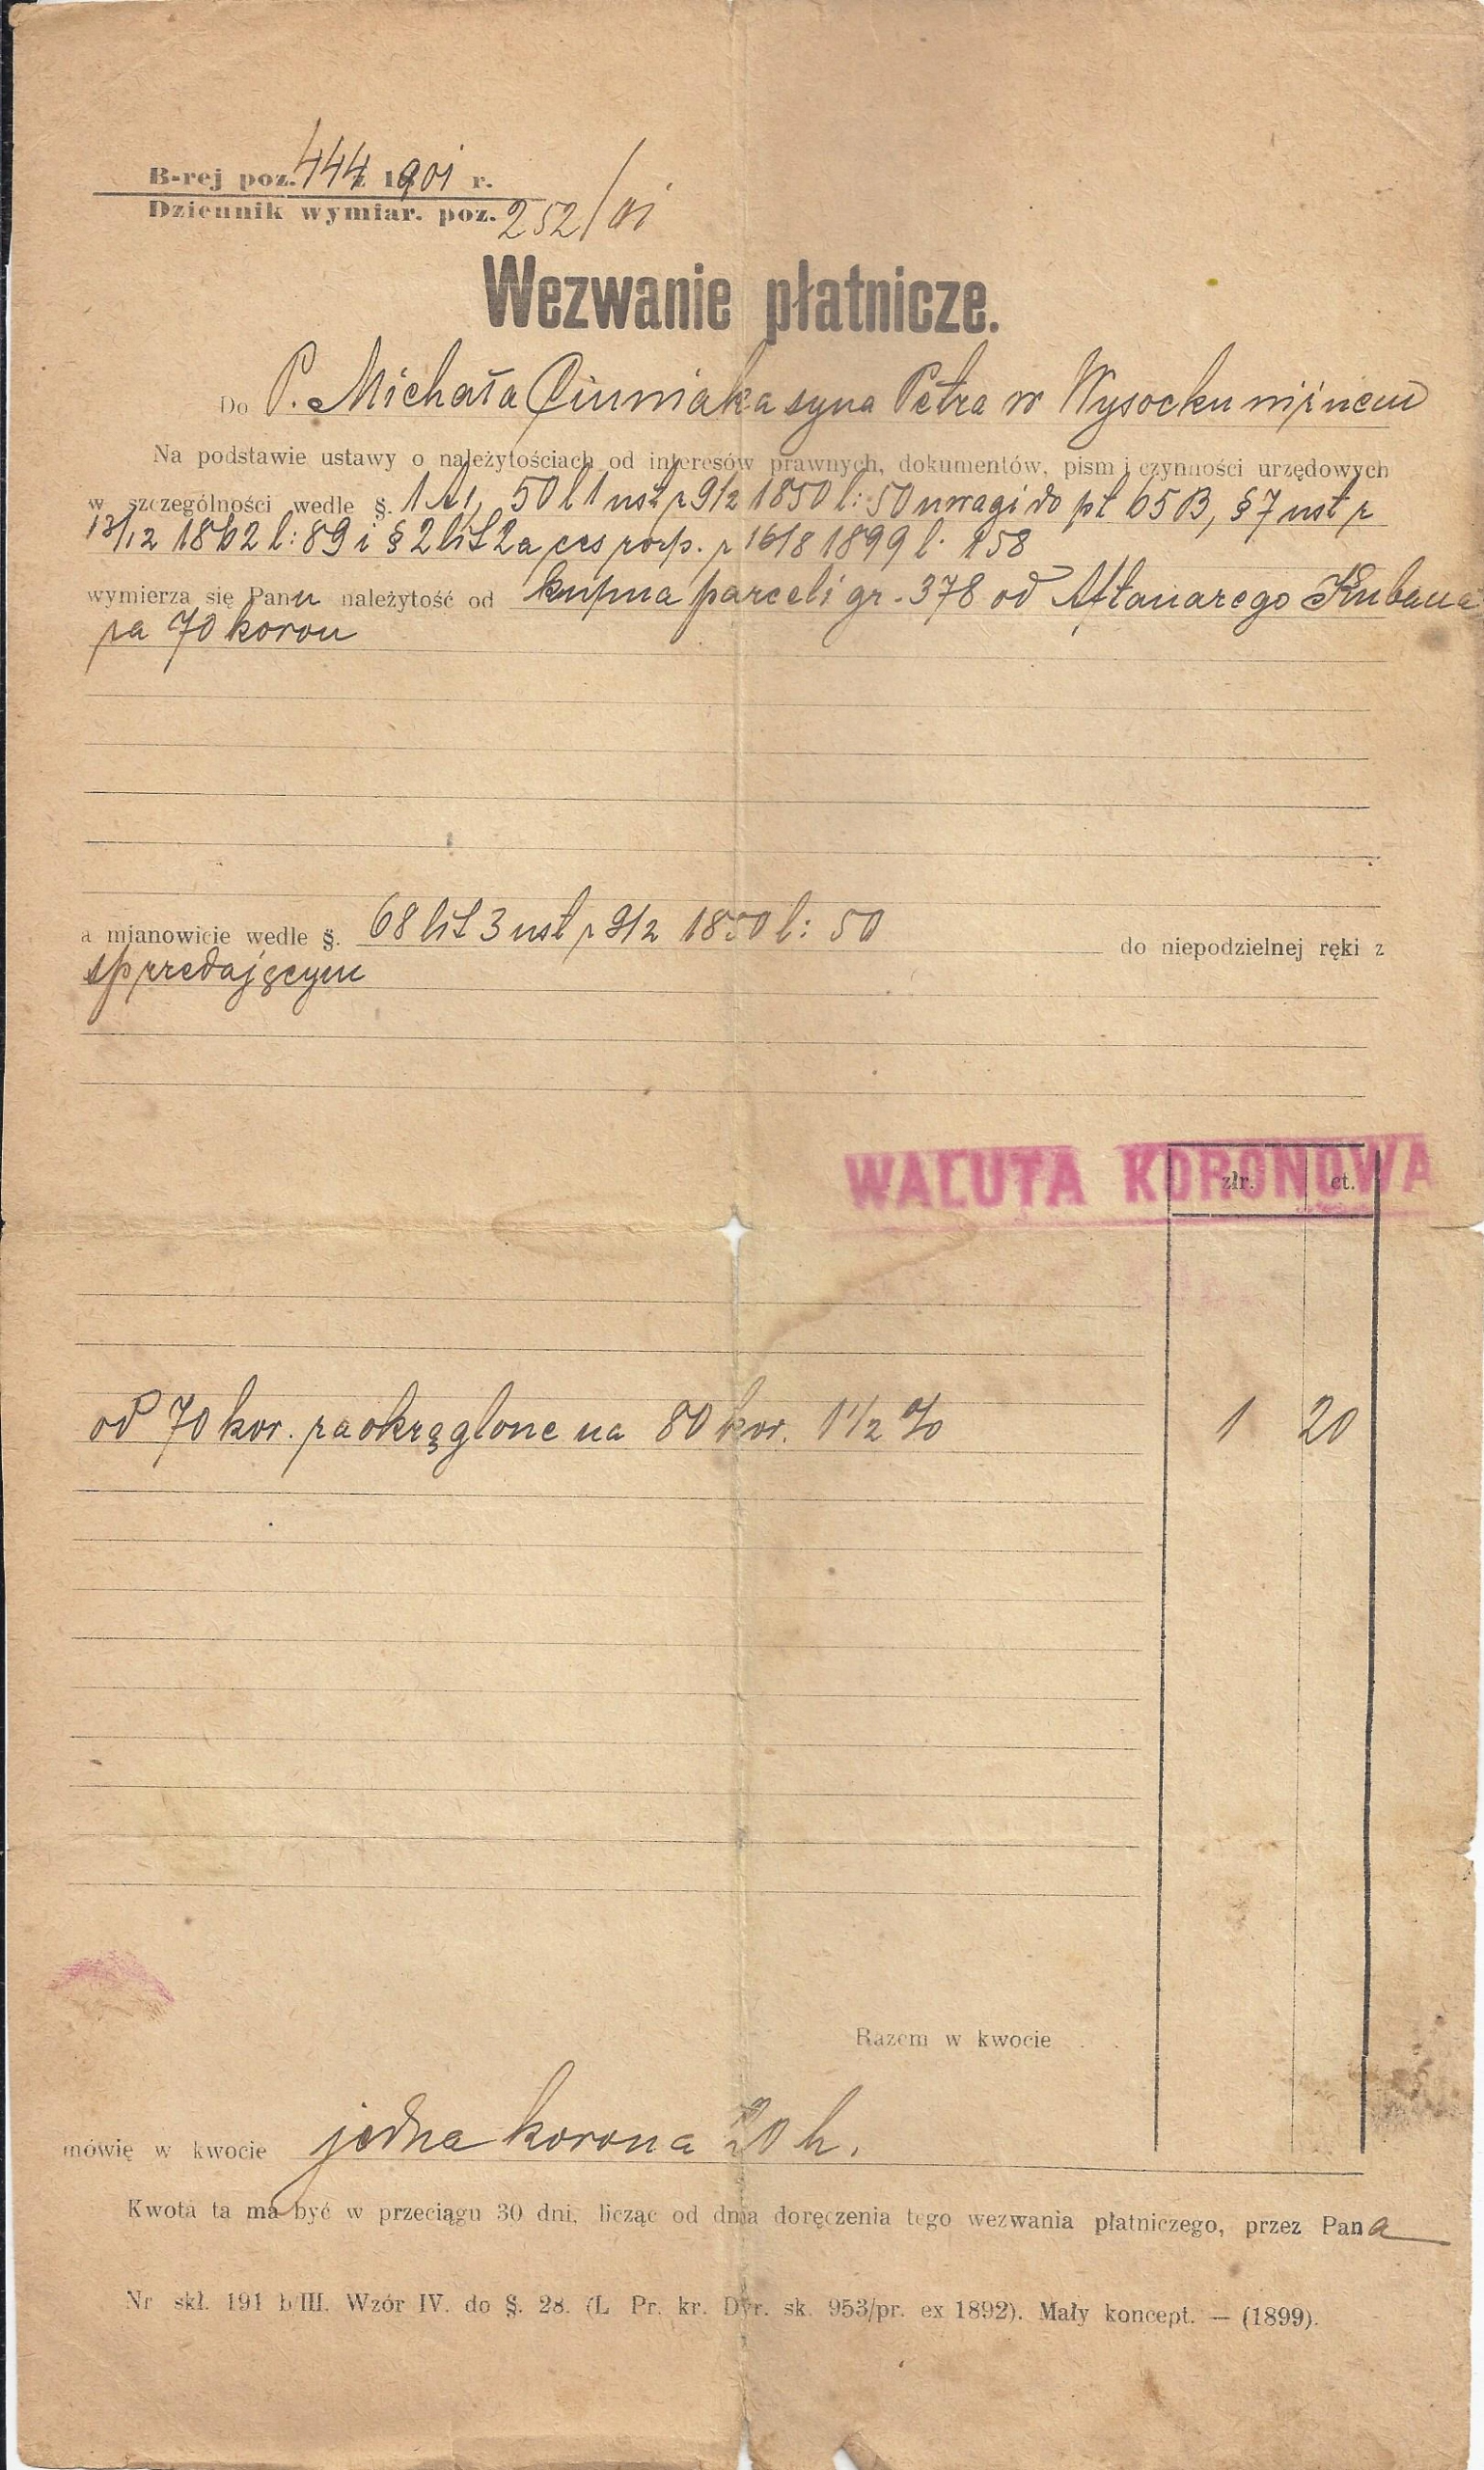 B-rej poz. 444 z 1901 r.
Dziennik wymiar. poz. 252/01
Wezwanie płatnicze.
Do P. Michała syna Petra w Wysocku niżnem
Na podstawie ustawy o należytościach od interesów prawnych, dokumentów, pism i czynności urzędowych
w szczególności wedle §. 1 A1, 50 l 1 ust z 9/2 1850 l: 50 uwagi do pt 65 B, § 7 ust z
13/12 1862 l: 89 i § 2 lit 2a ces rozp. z 16/8 1899 l. 158
wymierza się Panu należytość od kupna parceli gr. 378 od Kubana
za 70 koron
a mianowicie wedle §. 68 lit 3 ust z 9/2 1850 l: 50 do niepodzielnej ręki z
sprzedającym
WALUTA KORONOWA
złr. ct.
od 70 kor. zaokrąglone na 80 kor. 1 1/2 % 1 20
Razem w kwocie . .
mówię w kwocie jedna korona 20 h.
Kwota ta ma być w przeciągu 30 dni, licząc od dnia doręczenia tego wezwania płatniczego, przez Pana
Nr skł. 191 b/III. Wzór IV. do §. 28. (L. Pr. kr. Dyr. sk. 953/pr. ex 1892). Mały koncept. — (1899).